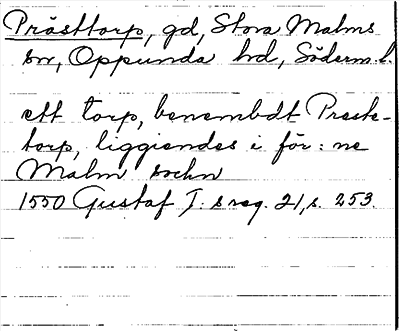 Prästtorp, gd, Stora Malms
sn, Oppunda hd, Söderm.l.
ett torp, benembdt Preste-
torp, liggiendes i för: ne
Malm sochn
1550 Gustaf I: s reg. 21, s. 253.